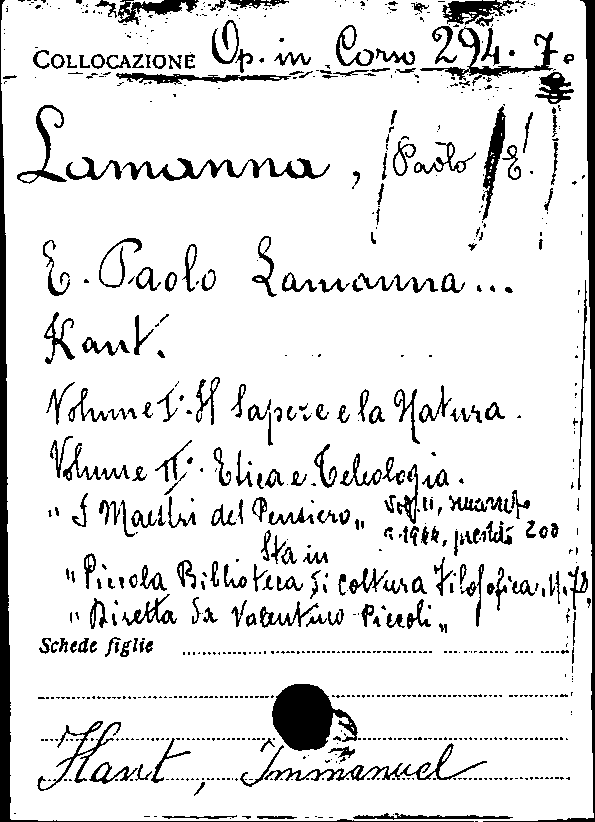 COLLOCAZIONE Op. in Corso 294. 7.
Lamanna, /Paolo E./
E. Paolo Lamanna...
Kant.
Volume I: Il Sapere e la Natura.
Volume II: Etica e Teleologia.
"I Maestri del Pensiero„ Vol. II, smarrito
prestito 200
Sta in
"Piccola Biblioteca di coltura Filosofica. N. 78.
"Diretta da Valentino Piccoli„
Schede figlie
Kant, Immanuel